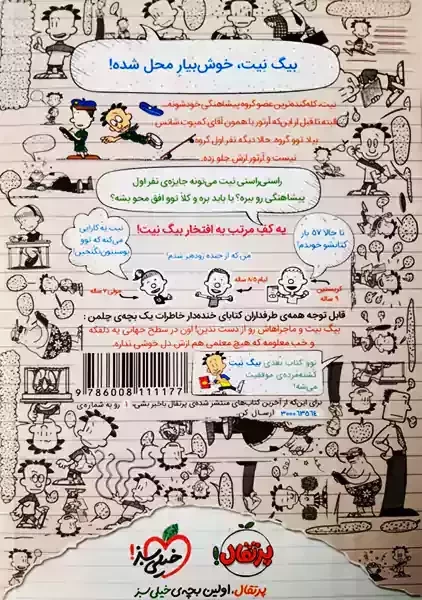 بیگ نیت، خوش‌بیارِ محل شده!
نیت، کله‌گنده‌ترین عضو گروه پیشاهنگی خودشونه...
البته تا قبل از این‌که آرتور یا همون آقای کمپوت شانس
بیاد توو گروه. حالا دیگه نفر اول گروه
نیست و آرتور ازش جلو زده.
راستی‌راستی نیت می‌تونه جایزه‌ی نفر اول
پیشاهنگی رو ببره؟ یا باید بره و کلاً توو افق محو بشه؟
یه کف مرتب به افتخار بیگ نیت!
تا حالا ۵۷ بار
کتابشو خوندم!
من که از خنده روده‌بر شدم!
نیت یه کارایی
می‌کنه که توو
پوستتون نگنجین!
کریستین
۹ ساله
لیام ۸/۵ ساله
جولی ۷ ساله
قابل توجه همه‌ی طرفدارای کتابای خنده‌دار خاطرات یک بچه‌ی چلمن:
بیگ نیت و ماجراهاش رو از دست ندین! اون در سطح جهانی یه دلقکه
و خب معلومه که هیچ معلمی هم ازش دل خوشی نداره.
توو کتاب بعدی بیگ نیت
گشنه‌مرده‌ی موفقیت
می‌شه!
9 786008 111177
برای این‌که از آخرین کتاب‌های منتشر شده‌ی پرتقال باخبر بشی،
رو به شماره‌ی
۳۰۰۰۶۳۵۶۴ ارسال کن.
پرتقال!
خیلی سبز!
پرتقال، اولین بچه‌ی خیلی سبز